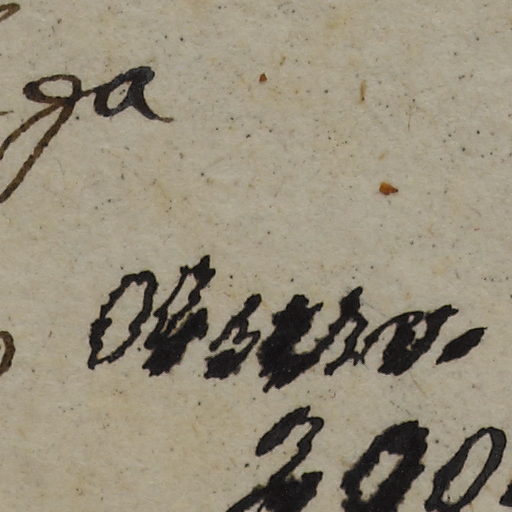 ga
Observ.
200